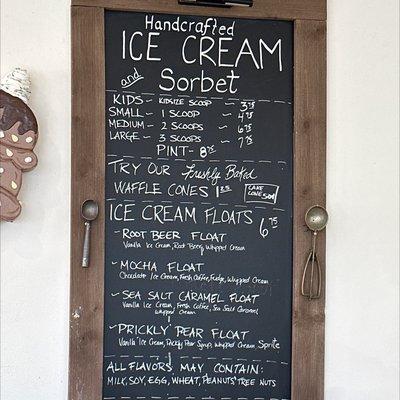 Handcrafted
ICE CREAM
and Sorbet
KIDS – KIDSIZE SCOOP – 3.75
SMALL – 1 SCOOP – 4.75
MEDIUM – 2 SCOOPS – 6.75
LARGE – 3 SCOOPS – 7.75
PINT – 8.75
TRY OUR Freshly Baked
WAFFLE CONES 1.25
CAKE CONE 50¢
ICE CREAM FLOATS 6.75
ROOT BEER FLOAT
Vanilla Ice Cream, Root Beer, Whipped Cream
MOCHA FLOAT
Chocolate Ice Cream, Fresh Coffee, Fudge, Whipped Cream
SEA SALT CARAMEL FLOAT
Vanilla Ice Cream, Fresh Coffee, Sea Salt Caramel
Whipped Cream
PRICKLY PEAR FLOAT
Vanilla Ice Cream, Prickly Pear Syrup, Whipped Cream Sprite
ALL FLAVORS MAY CONTAIN:
MILK, SOY, EGG, WHEAT, PEANUTS, TREE NUTS